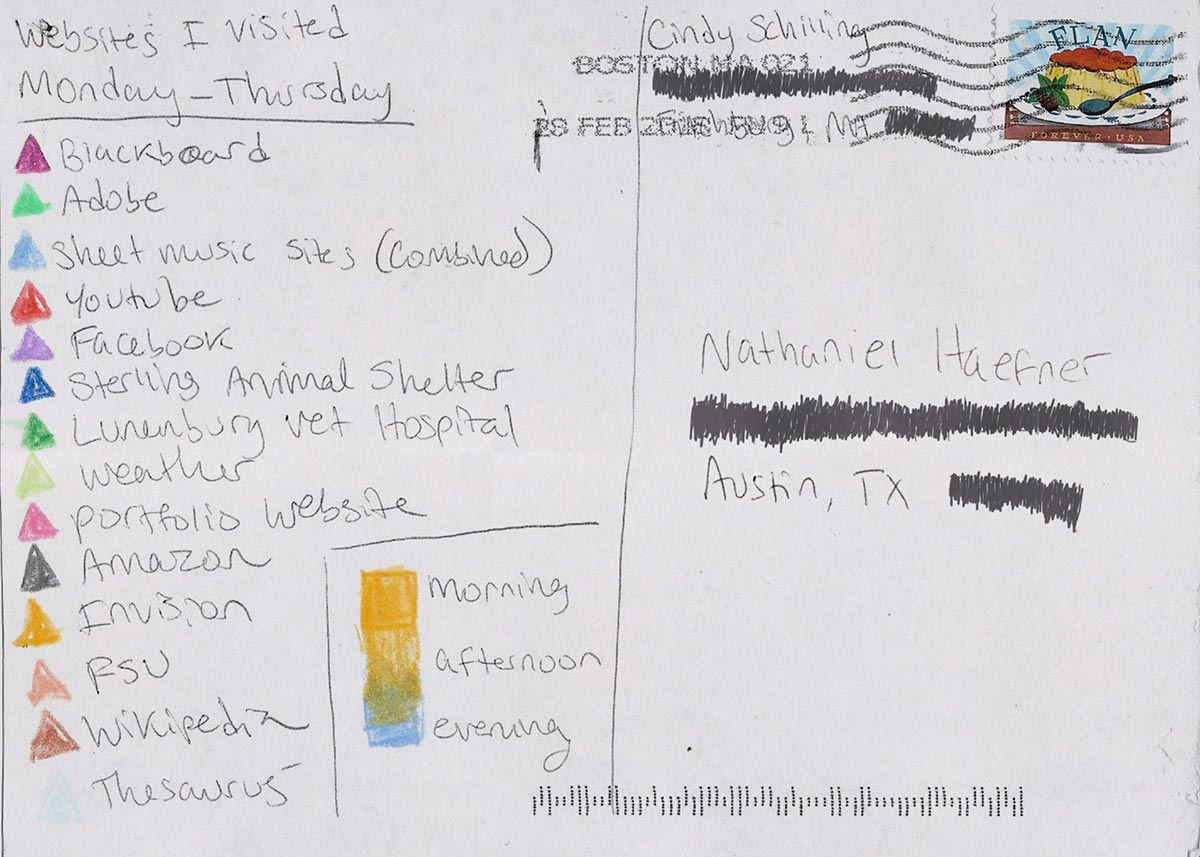 Websites I visited
Monday – Thursday
Blackboard
Adobe
Sheet music sites (combined)
Youtube
Facebook
Sterling Animal Shelter
Lunenburg vet Hospital
weather
portfolio website
Amazon
Invision
FSU
Wikipedia
Thesaurus
morning
afternoon
evening
Cindy Schilling
BOSTON MA 021
FEB
MA
FLAN
FOREVER • USA
Nathaniel Haefner
Austin, TX